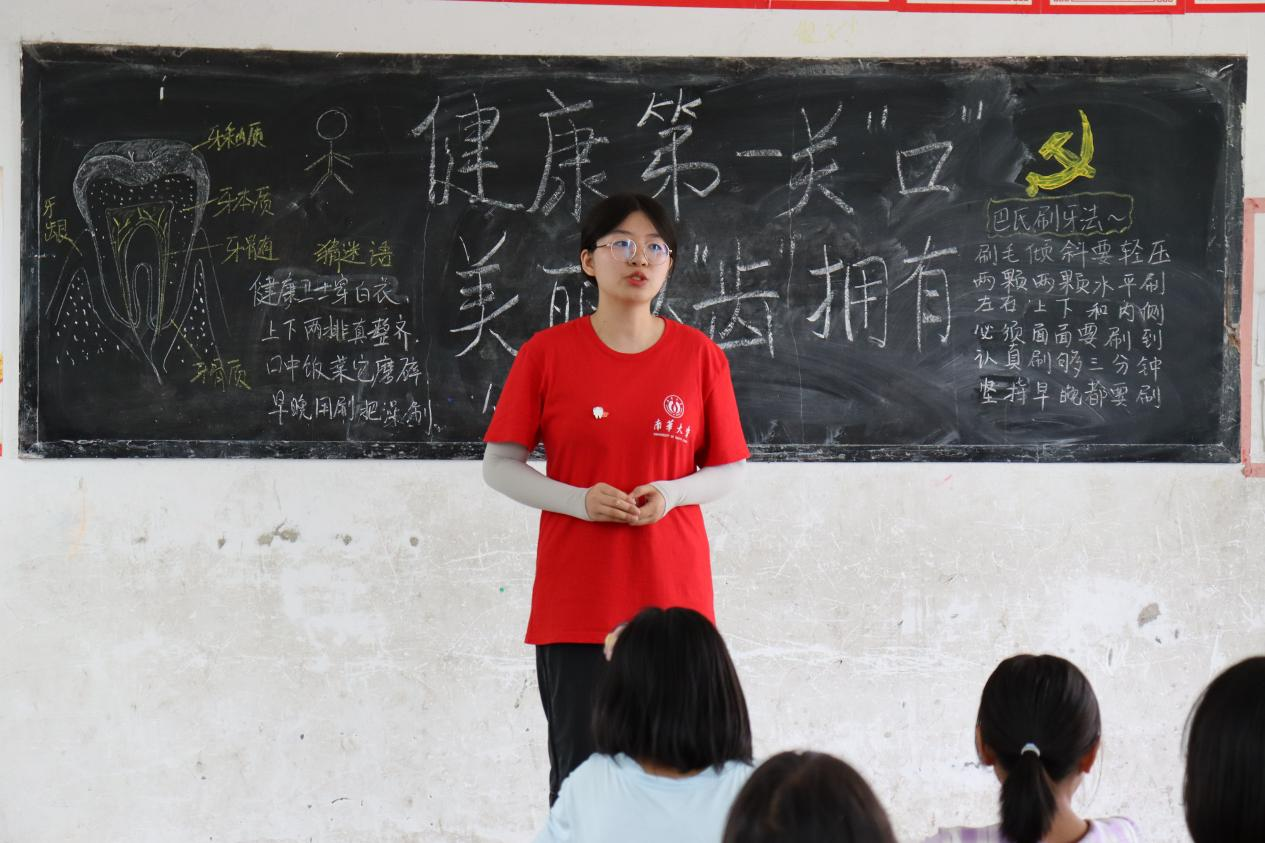 牙釉质
牙本质
牙龈
牙髓
牙骨质
猜迷语
健康卫士穿白衣,
上下两排真整齐.
口中饭菜它磨碎
早晚用刷把澡制.
健康第一关"口"
美丽"齿"拥有
巴氏刷牙法~
刷毛倾斜要轻压
两颗两颗水平刷
左右上下和内侧
必须面面要刷到
认真刷够三分钟
坚持早晚都要刷
南華大學